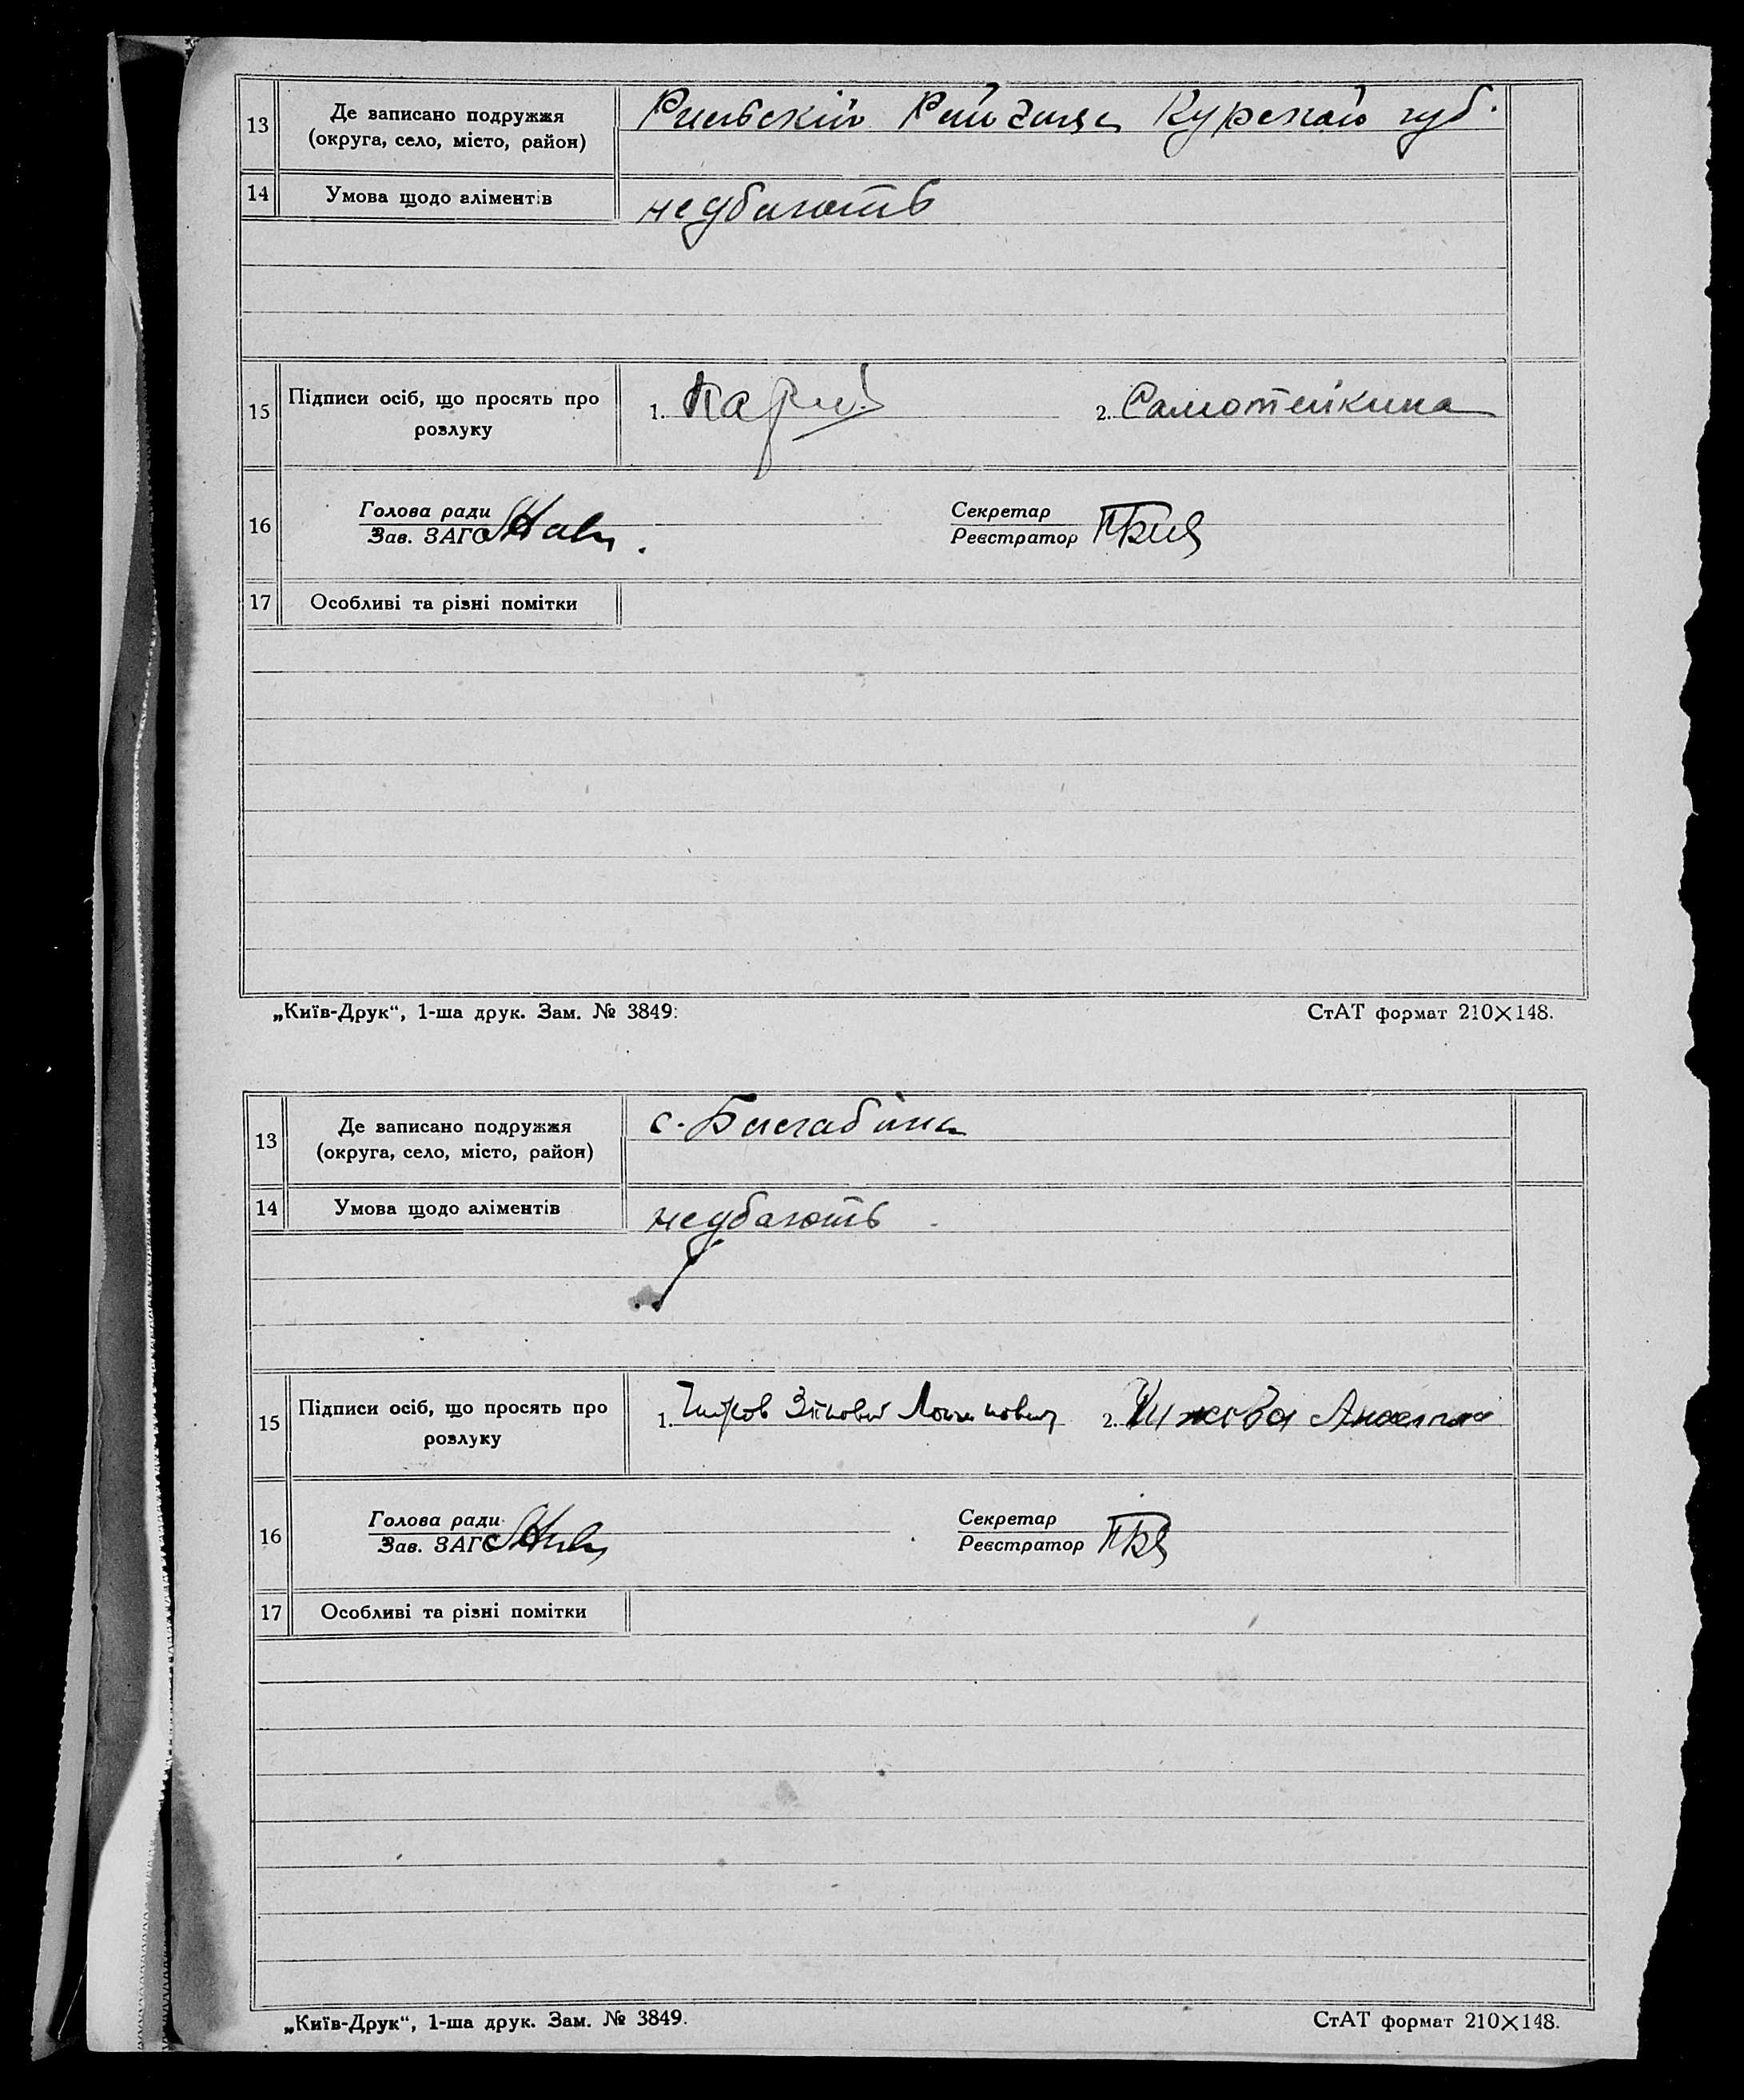 13 Де записано подружжя
(округа, село, місто, район)
Рильскій Райзагса Курской губ.
14 Умова щодо аліментів
недбають
15 Підписи осіб, що просять про
розлуку
1. 2. Самотейкина
16 Голова ради
Зав. ЗАГС
Секретар
Реєстратор
17 Особливі та різні помітки
„Київ-Друк“, 1-ша друк. Зам. № 3849.
СтАТ формат 210×148.
13 Де записано подружжя
(округа, село, місто, район)
с.
14 Умова щодо аліментів
недбають
15 Підписи осіб, що просять про
розлуку
1. 2. Чижова
16 Голова ради
Зав. ЗАГС
Секретар
Реєстратор
17 Особливі та різні помітки
„Київ-Друк“, 1-ша друк. Зам. № 3849.
СтАТ формат 210×148.